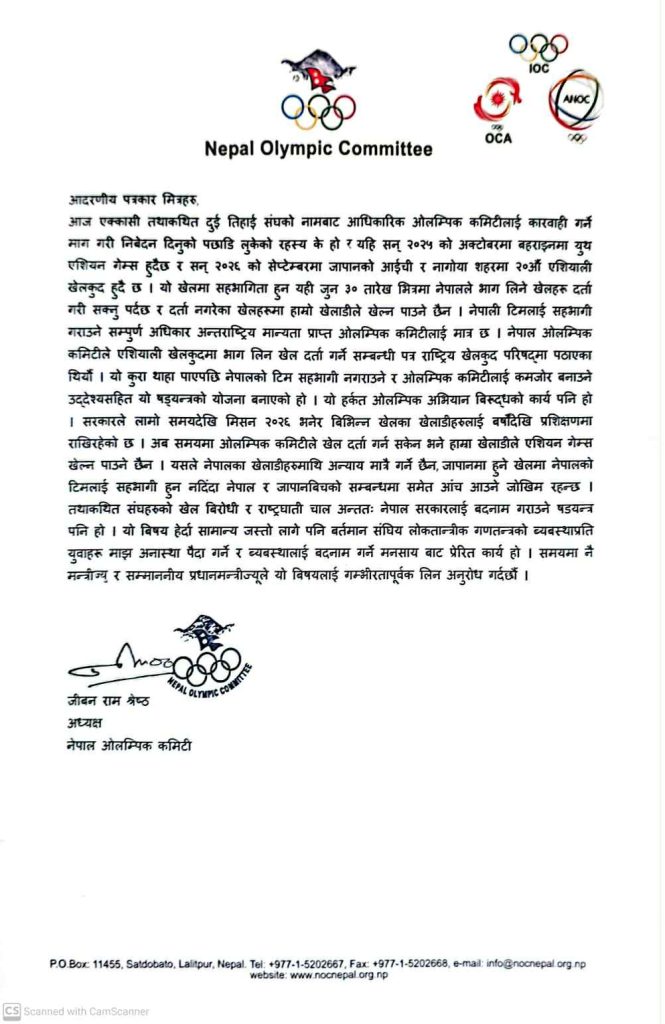 IOC
OCA
ANOC
Nepal Olympic Committee
आदरणीय पत्रकार मित्रहरु,
आज एक्कासी तथाकथित दुई तिहाई संघको नामबाट आधिकारिक ओलम्पिक कमिटीलाई कारवाही गर्ने
माग गरी निबेदन दिनुको पछाडि लुकेको रहस्य के हो र यहि सन् २०२५ को अक्टोबरमा बहराइनमा युथ
एशियन गेम्स हुदैछ र सन् २०२६ को सेप्टेम्बरमा जापानको आईची र नागोया शहरमा २०औँ एशियाली
खेलकुद हुदै छ । यो खेलमा सहभागिता हुन यही जुन ३० तारेख भित्रमा नेपालले भाग लिने खेलहरू दर्ता
गरी सक्नु पर्दछ र दर्ता नगरेका खेलहरूमा हाम्रो खेलाडीले खेल्न पाउने छैन । नेपाली टिमलाई सहभागी
गराउने सम्पुर्ण अधिकार अन्तराष्ट्रिय मान्यता प्राप्त ओलम्पिक कमिटीलाई मात्र छ । नेपाल ओलम्पिक
कमिटीले एशियाली खेलकुदमा भाग लिन खेल दर्ता गर्ने सम्बन्धी पत्र राष्ट्रिय खेलकुद परिषद्‌मा पठाएका
थियौँ । यो कुरा थाहा पाएपछि नेपालको टिम सहभागी नगराउने र ओलम्पिक कमिटीलाई कमजोर बनाउने
उद्देश्यसहित यो षड्यन्त्रको योजना बनाएको हो । यो हर्कत ओलम्पिक अभियान बिरूद्धको कार्य पनि हो
। सरकारले लामो समयदेखि मिसन २०२६ भनेर बिभिन्न खेलका खेलाडीहरुलाई बर्षौंदेखि प्रशिक्षणमा
राखिरहेको छ । अब समयमा ओलम्पिक कमिटीले खेल दर्ता गर्न सकेन भने हाम्रा खेलाडीले एशियन गेम्स
खेल्न पाउने छैन । यसले नेपालका खेलाडीहरुमाथि अन्याय मात्रै गर्ने छैन, जापानमा हुने खेलमा नेपालको
टिमलाई सहभागी हुन नदिंदा नेपाल र जापानबिचको सम्बन्धमा समेत आंच आउने जोखिम रहन्छ ।
तथाकथित संघहरुको खेल बिरोधी र राष्ट्रघाती चाल अन्ततः नेपाल सरकारलाई बदनाम गराउने षडयन्त्र
पनि हो । यो बिषय हेर्दा सामान्य जस्तो लागे पनि बर्तमान संघिय लोकतान्त्रीक गणतन्त्रको ब्यवस्थाप्रति
युवाहरू माझ अनास्था पैदा गर्ने र ब्यवस्थालाई बदनाम गर्ने मनसाय बाट प्रेरित कार्य हो । समयमा नै
मन्त्रीज्यु र सम्माननीय प्रधानमन्त्रीज्यूले यो बिषयलाई गम्भीरतापूर्वक लिन अनुरोध गर्दछौँ ।
NEPAL OLYMPIC COMMITTEE
जीबन राम श्रेष्ठ
अध्यक्ष
नेपाल ओलम्पिक कमिटी
P.O.Box: 11455, Satdobato, Lalitpur, Nepal. Tel: +977-1-5202667, Fax: +977-1-5202668, e-mail: info@nocnepal.org.np
website: www.nocnepal.org.np
CS Scanned with CamScanner